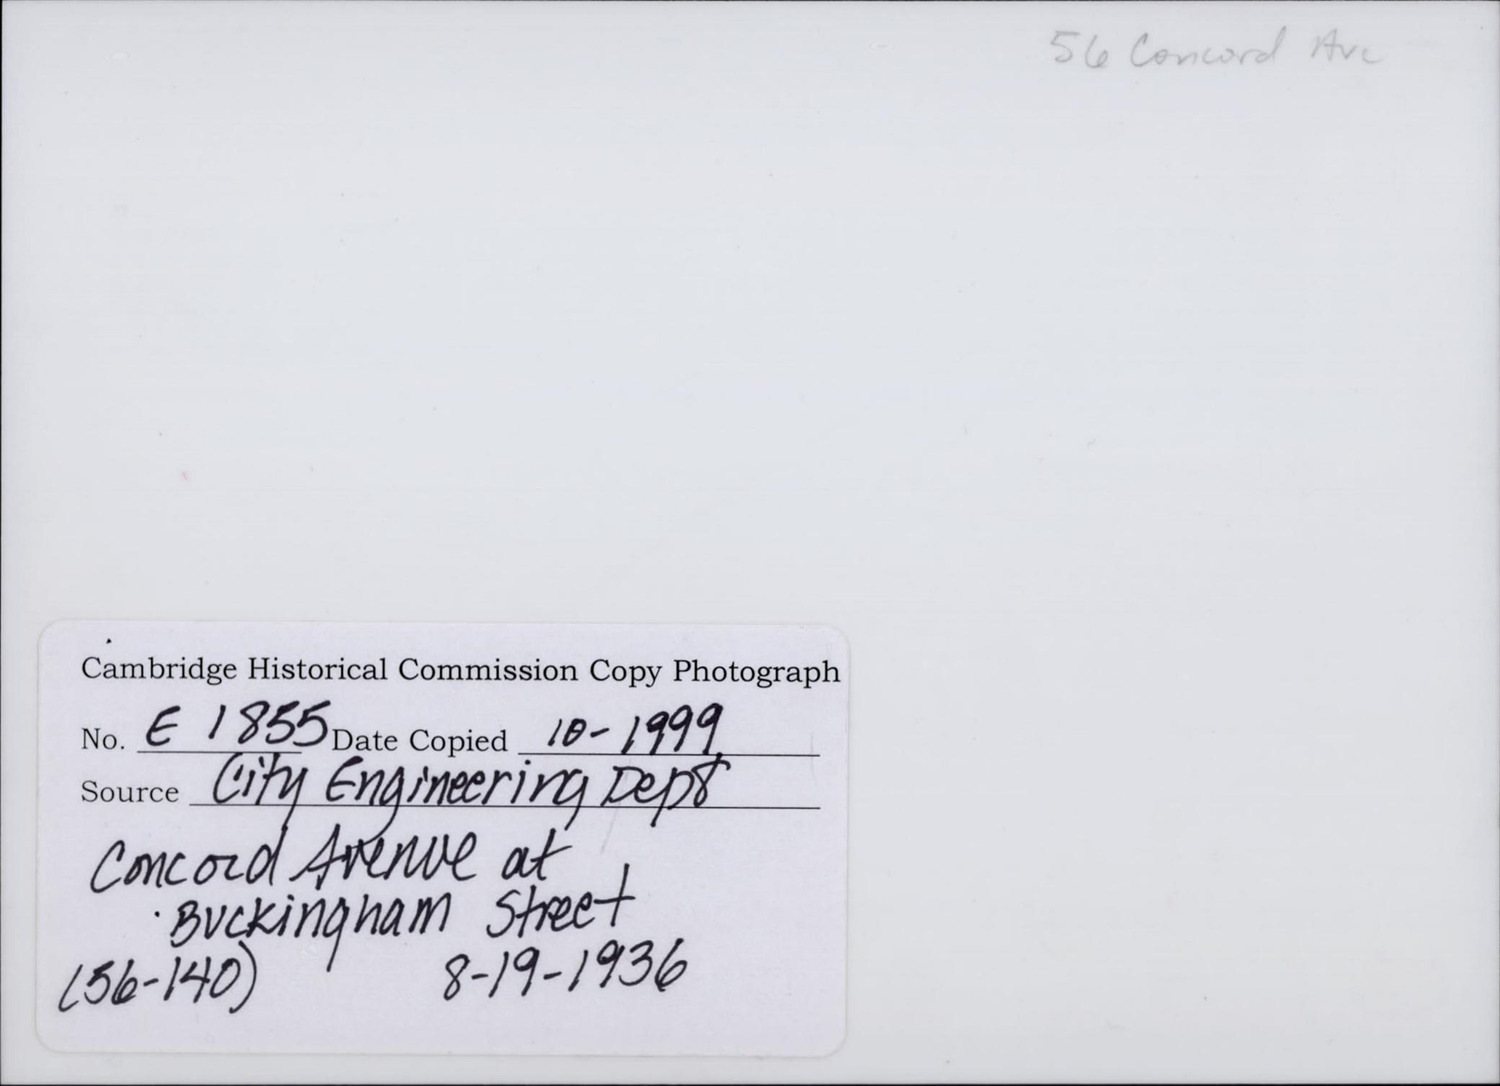 56 Concord Ave
Cambridge Historical Commission Copy Photograph
No. E 1855 Date Copied 10-1999
Source City Engineering Dept
Concord Avenue at
Buckingham Street
(56-140) 8-19-1936